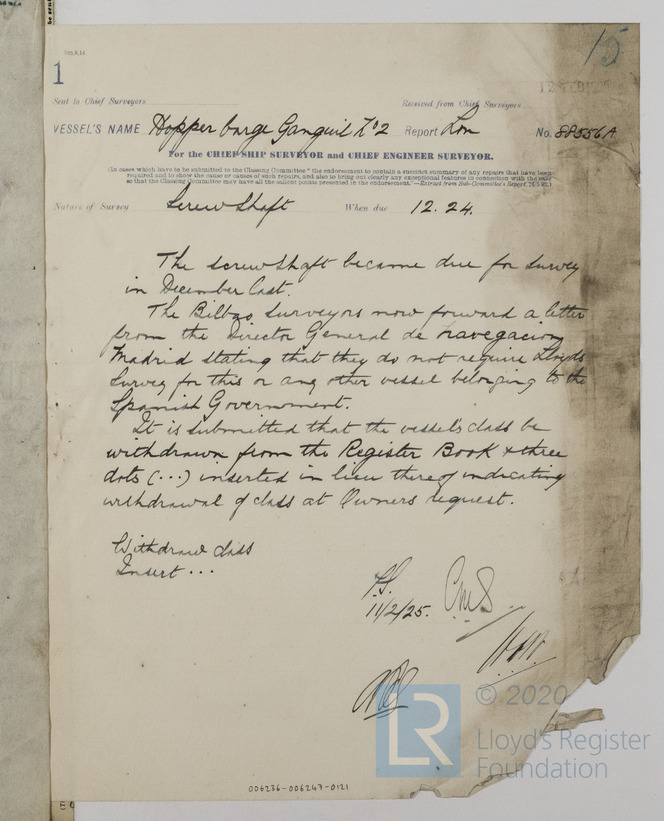 15
1
Sent to Chief Surveyors
Received from Chief Surveyors
VESSEL'S NAME Hopper barge Ganguil No 2 Report Lon No. 88556A
For the CHIEF SHIP SURVEYOR and CHIEF ENGINEER SURVEYOR.
(In cases which have to be submitted to the Classing Committee "the endorsement to contain a succinct summary of any repairs that have been
required and to show the cause or causes of such repairs, and also to bring out clearly any exceptional features in connection with the case
so that the Classing Committee may have all the salient points presented in the endorsement."—Extract from Sub-Committee's Report,
Nature of Survey Screw Shaft When due 12.24.
The screwshaft became due for survey
in December last.
The Bilbao surveyors now forward a letter
from the Director General de navegacion
Madrid stating that they do not require Lloyds
Survey for this or any other vessel belonging to the
Spanish Government.
It is submitted that the vessel's class be
withdrawn from the Register Book & three
dots (...) inserted in lieu thereof indicating
withdrawal of class at Owners request.
Withdraw class
Insert ...
11/2/25.
LR
© 2020
Lloyd's Register
Foundation
006236-006247-0121